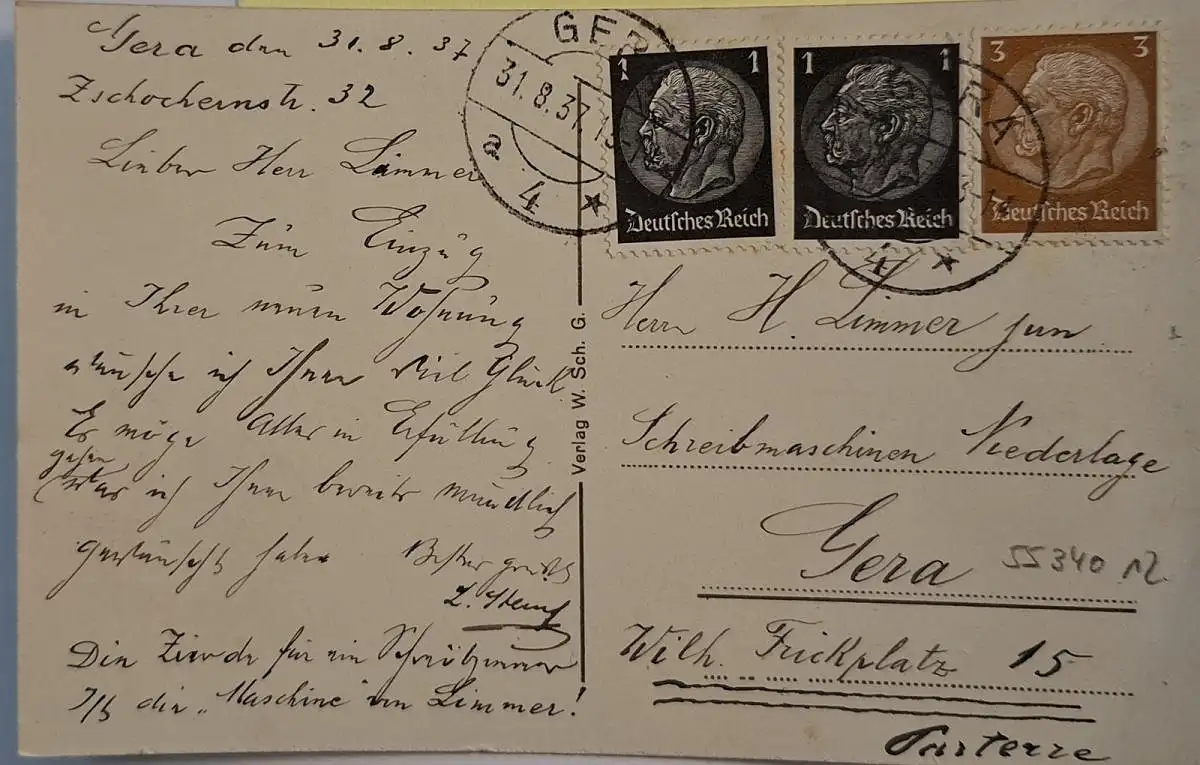 Gera den 31.8.37
Zschochernstr. 32
Lieber Herr Limmer
Zum Einzug
in Ihrer neuen Wohnung
wünsche ich Ihnen viel Glück
Es möge Alles in Erfüllung
gehen
was ich Ihnen bereits mündlich
gewünscht habe. Besten
Die Zierde für ein
Ist die „Maschine" von Limmer!
Verlag W. Sch. G.
GERA
31.8.37
a
4
1 1
Deutsches Reich
1
Deutsches Reich
3 3
Deutsches Reich
Herrn H. Limmer jun
Schreibmaschinen Niederlage
Gera
55340
Wilh. Frickplatz 15
Parterre